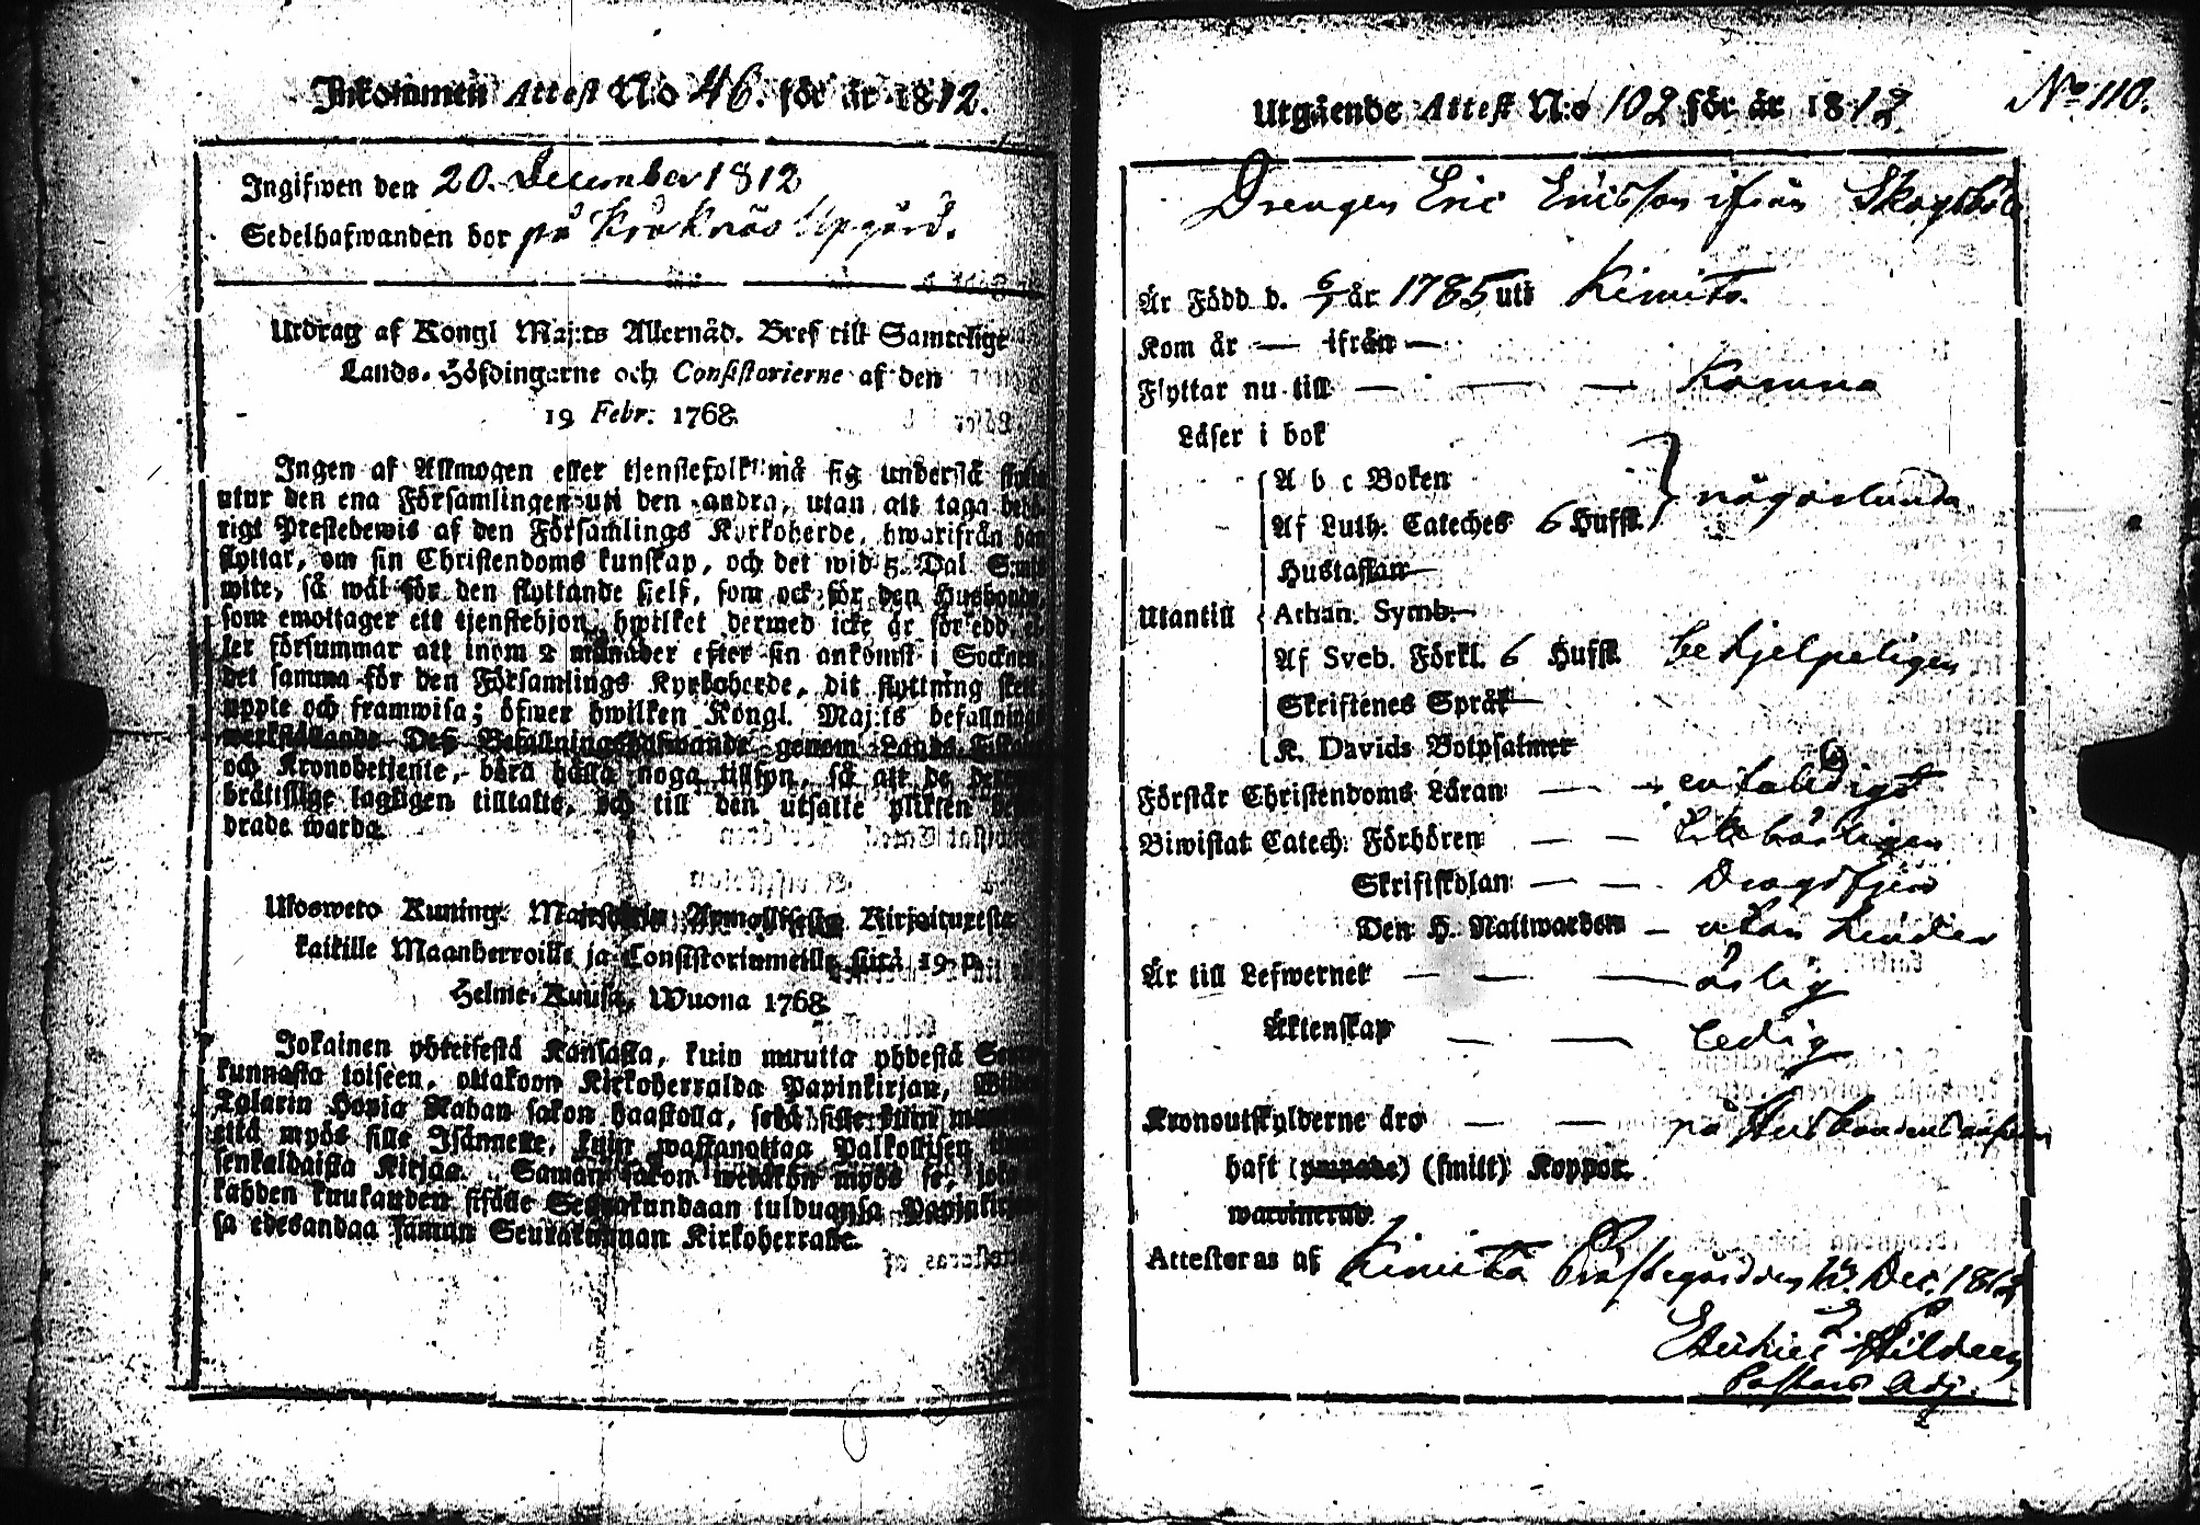 Inkommen Attest No 46. för år 1812.
Ingifwen den 20. December 1812
Sedelhafwanden bor på Kråknäs Upgård.
Utdrag af Kongl Maj:ts Allernåd. Bref till Samtelige
Lands-Höfdingarne och Consistorierne af den
19 Febr: 1768.
Ingen af Allmogen eller tjenstefolk må sig understå flytta
utur den ena Församlingen uti den andra, utan att taga behö-
rigt Prestebewis af den Församlings Kyrkoherde, hwarifrån han
flyttar, om sin Christendoms kunskap, och det wid 5. Dal S:mts
wite, så wäl för den flyttande sielf, som ock för den Husbonde,
som emottager ett tjenstehjon, hwilket dermed icke är försedd, el-
ler försummar att inom 2 månader efter sin ankomst i Socknen
det samma för den Församlings Kyrkoherde, dit flyttning skett,
uppte och framwisa; öfwer hwilken Kongl. Maj:ts befallnings
werkställande Dess Befallningshafwande genom Lands Fiskaler
och Kronobetjente, böra hålla noga tillsyn, så att de
brättslige lagligen tilltalte, och till den utsatte plikten
drade warda.
Ulosweto Kuning: Maj:stetin Armollisesta Kirjoituxesta
kaikille Maanherroille ja Consistoriumeille siitä 19 p.
Helme-Kuusa, Wuona 1768.
Jokainen yhteisestä Kansasta, kuin muutta yhdestä Seura-
kunnasta toiseen, ottakoon Kirkoherralda Papinkirjan,
Talarin Hopia Rahan sakon haastolla, sekä sille kuin
että myös sille Isännelle, kuin wastanottaa Palkollisen
senkaldaista Kirjaa. Saman sakon wetäkön myös se, joka
kahden kuukauden sisälle Seurakundaan tulduansa Papinkirjan-
sa edesandaa saman Seurakunnan Kirkoherralle.
No 110.
Utgående Attest N:o 102 för år 1812
Drengen Eric Ericsson ifrån Skogsböle
Är Född d. 6/7 år 1785 uti Kimito.
Kom år — ifrån —
Flyttar nu till — — — Korpo
Läser i bok
A b c Boken
Af Luth: Cateches 6 Hufst. någorlunda
Hustaflan
Utantill Athan. Symb.
Af Sveb. Förkl. 6 Hufst. behjelpeligen
Skriftenes Språk
K. Davids Botpsalmer
Förstår Christendoms Läran — — enfaldigt
Biwistat Catech: Förhören — —
Skriftskolan — —
Den H. Nattwarden — utan hinder
Är till Lefwernet — — — ärlig
Äktenskap — — ledig
Kronoutskylderne äro — — på Husbondens ansvar
haft (ympade) (smitt) Koppor.
waccinerad.
Attesteras af Kimito Prästegård den 13. Dec. 1812
Pastors Adj.